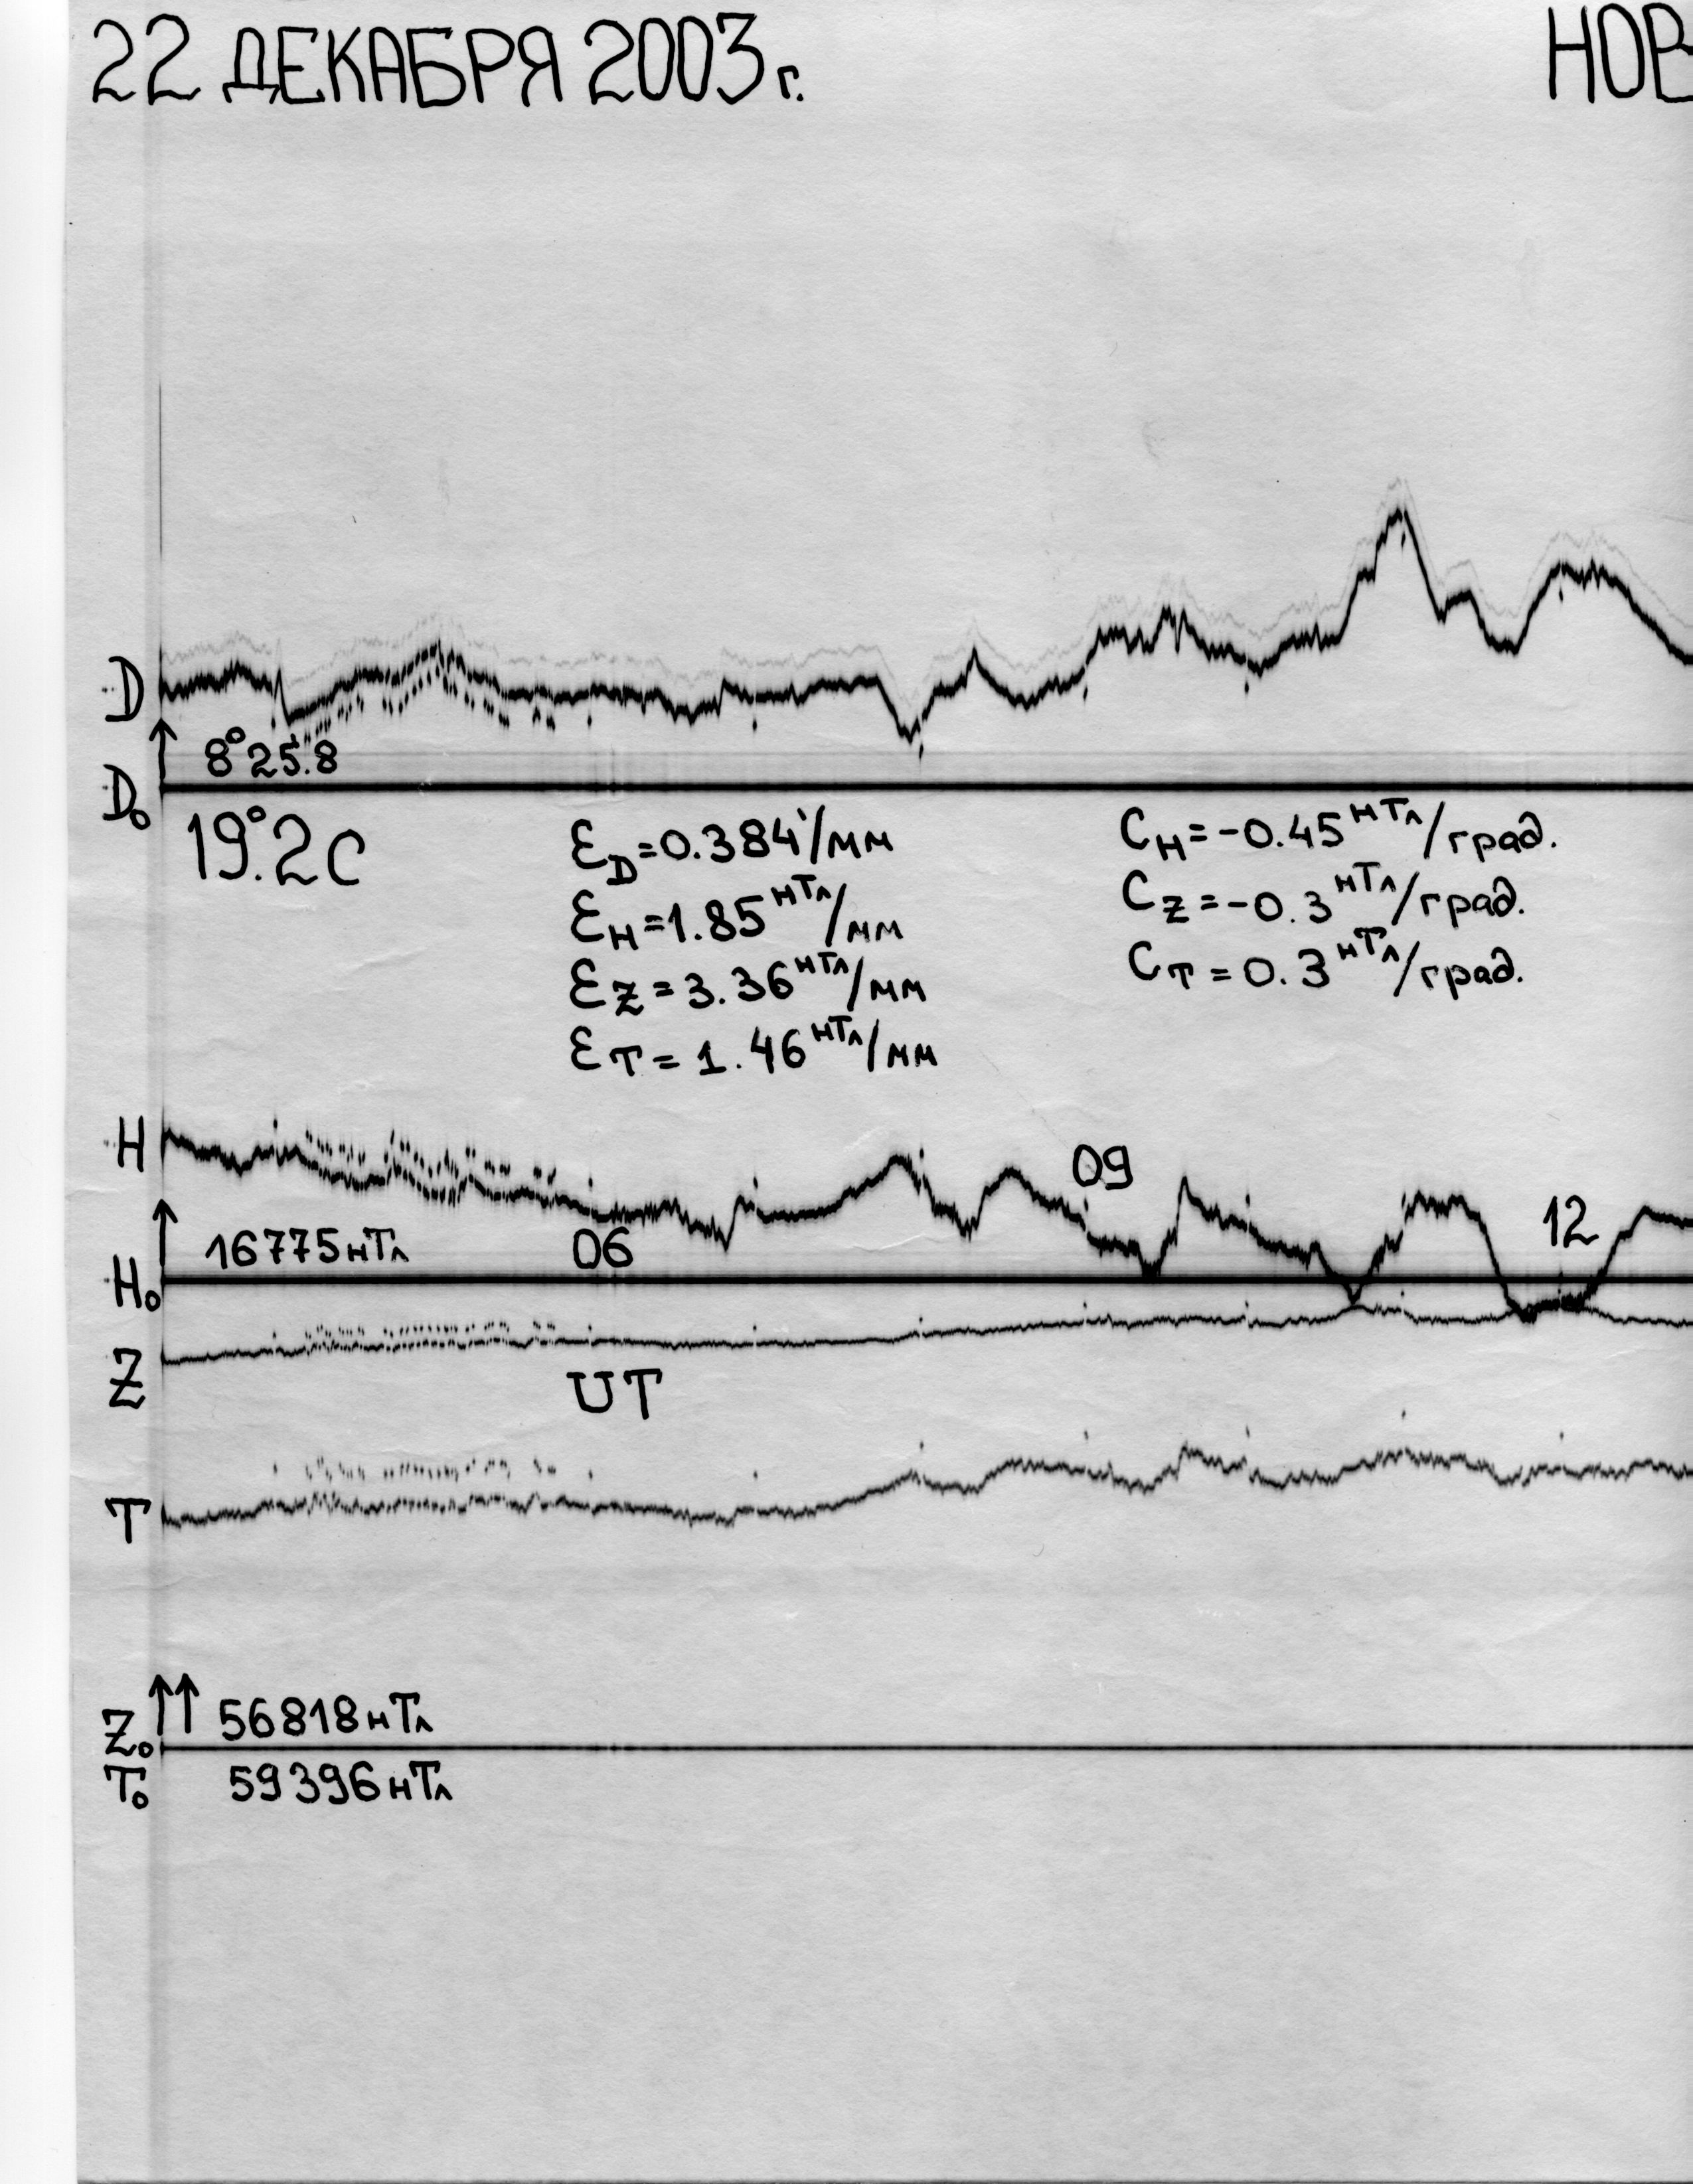 22 ДЕКАБРЯ 2003г.
НОВ
D
8°25.'8
D₀
19°.2С
εD=0.384'/мм
εH=1.85нТл/мм
εZ=3.36нТл/мм
εT=1.46нТл/мм
CH=-0.45нТл/град.
CZ=-0.3нТл/град.
CT=0.3нТл/град.
H
09
12
16775нТл
06
H₀
Z
UT
T
Z₀
56818нТл
T₀
59396нТл